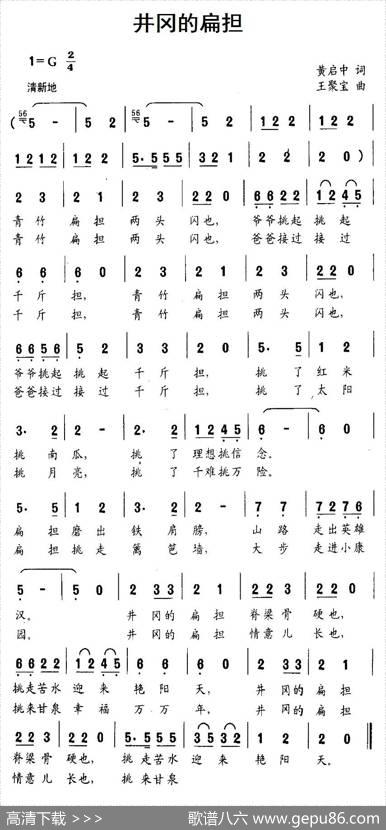 井冈的扁担
1=G 2/4
黄启中 词
清新地
王聚宝 曲
(56 5 - | 5 2 | 56 5 - | 5 2 | 1 2 2 | 1 2 0 |
1 2 1 2 | 1 2 2 | 5· 5 5 5 | 3 2 1 | 2 2 | 2 0 )|
2 3 | 2 1 | 2 3 | 2 2 0 | 6 6 2 2 | 1 2 4 5 |
青竹 扁担 两头 闪也, 爷爷挑起 挑起
青竹 扁担 两头 闪也, 爸爸接过 接过
6 6 | 6 0 | 2 3 | 2 1 | 2 3 | 2 2 0 |
千斤 担, 青竹 扁担 两头 闪也,
千斤 担, 青竹 扁担 两头 闪也,
6 6 5 6 | 5 6 | 2 2 | 2 0 | 5· 5 | 1 2 |
爷爷挑起 挑起 千斤 担, 挑了 红米
爸爸接过 接过 千斤 担, 挑了 太阳
3· 2 | 2 - | 2· 2 | 1 2 4 5 | 6 - | 6 0 |
挑南 瓜, 挑了 理想挑信 念。
挑月 亮, 挑了 千难挑万 险。
5· 5 | 1 2 | 3· 2 | 2 - | 7 7 | 7 2 7 6 |
扁担 磨出 铁肩 膀, 山路 走出英雄
扁担 挑走 篱笆 墙, 大步 走进小康
5 - | 5 0 | 2 3 3 | 2 1 | 2 2 3 | 2 2 0 |
汉。 井冈的 扁担 脊梁骨 硬也,
园。 井冈的 扁担 情意儿 长也,
6 6 2 2 | 1 2 4 5 | 6 6 | 6 0 | 2 3 3 | 2 1 |
挑走苦水 迎来 艳阳 天, 井冈的 扁担
挑来甘泉 幸福 万万 年, 井冈的 扁担
2 2 3 | 2 2 0 | 5· 5 5 5 | 3 5 3 2 | 1 2 | 2 0 ‖
脊梁骨 硬也, 挑走苦水 迎来 艳阳 天。
情意儿 长也, 挑来甘泉
高清下载 >>>
歌谱八六 www.gepu86.com